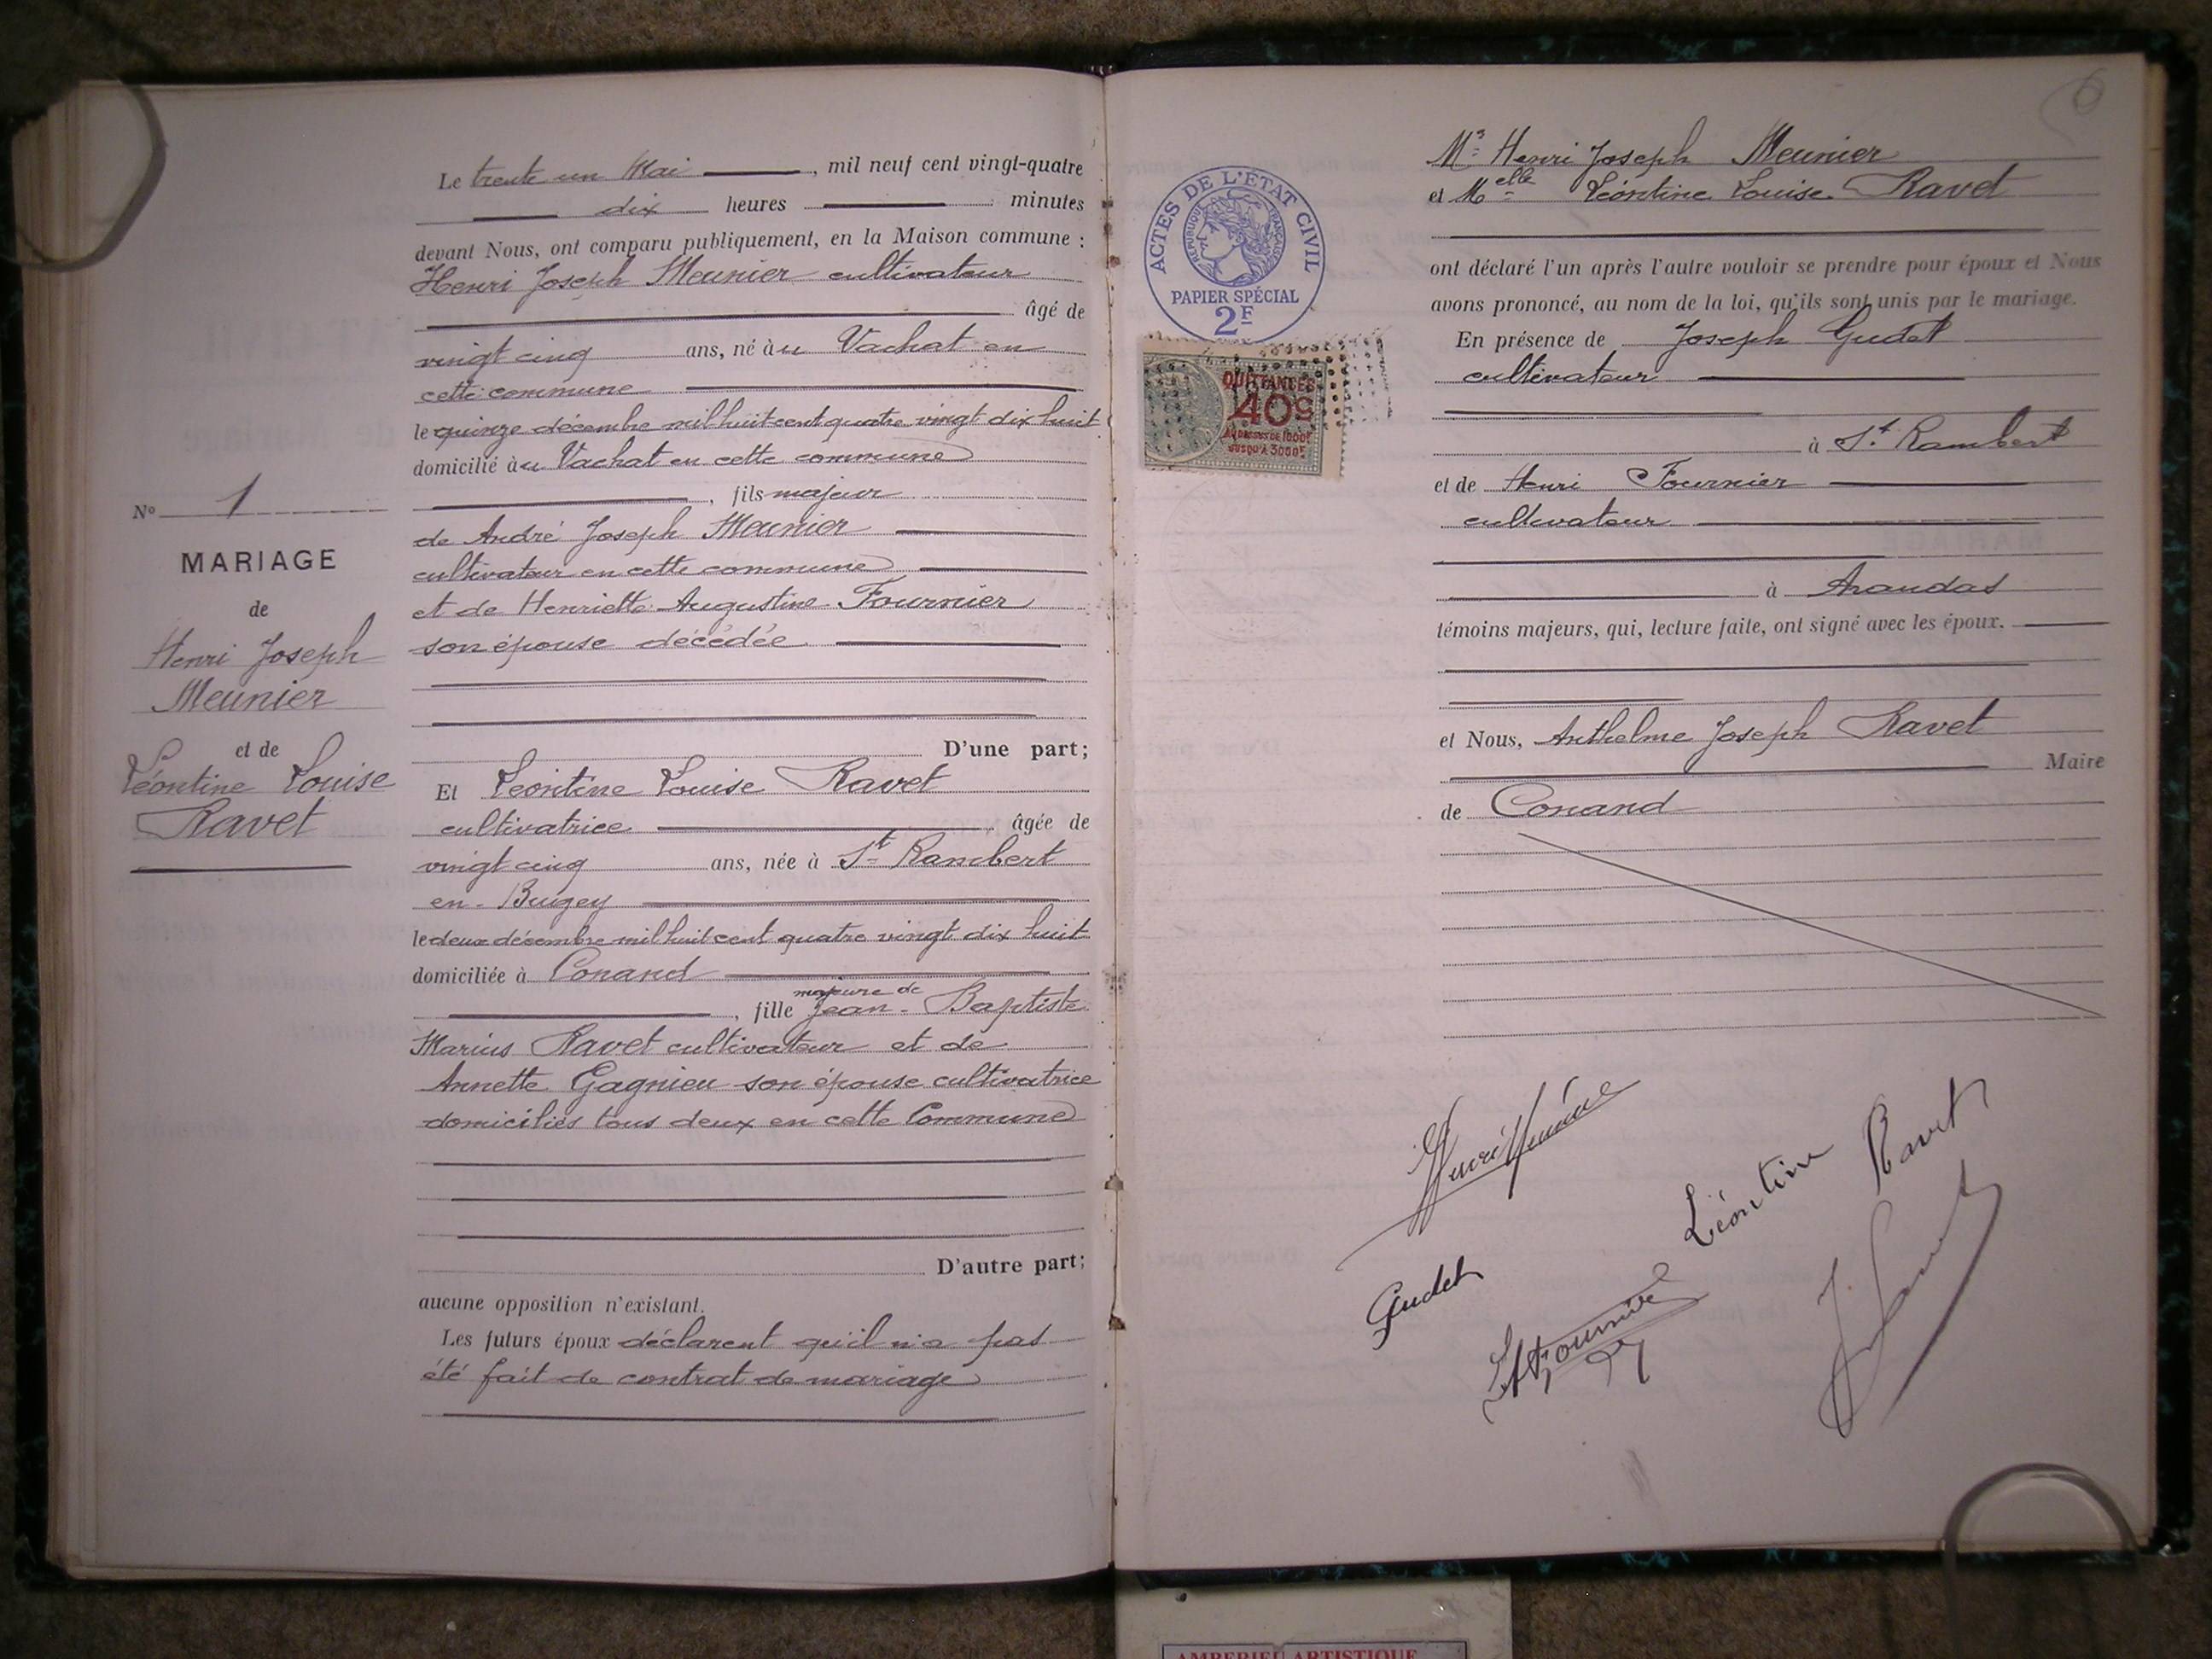 Le trente un Mai, mil neuf cent vingt-quatre
dix heures minutes
devant Nous, ont comparu publiquement, en la Maison commune :
Henri Joseph Meunier cultivateur
âgé de
vingt cinq ans, né àu Vachat en
cette commune
le quinze décembre mil huit cent quatre vingt dix huit
domicilié àu Vachat en cette commune
, fils majeur
de André Joseph Meunier
cultivateur en cette commune
et de Henriette Augustine Fournier
son épouse décédée
D'une part;
Et Léontine Louise Ravet
cultivatrice âgée de
vingt cinq ans, née à St Rambert
en-Bugey
le deux décembre mil huit cent quatre vingt dix huit
domiciliée à Conand
majeure de
, fille Jean-Baptiste
Marius Ravet cultivateur et de
Annette Gagnieu son épouse cultivatrice
domiciliés tous deux en cette Commune
D'autre part;
aucune opposition n'existant.
Les futurs époux déclarent qu'il n'a pas
été fait de contrat de mariage
No 1
MARIAGE
de
Henri Joseph
Meunier
et de
Léontine Louise
Ravet
6
ACTES DE L'ÉTAT CIVIL
RÉPUBLIQUE FRANÇAISE
PAPIER SPÉCIAL
2F
QUITTANCES
40c
AU DESSUS DE 1000F
JUSQU'À 3000F
Mr Henri Joseph Meunier
et Melle Léontine Louise Ravet
ont déclaré l'un après l'autre vouloir se prendre pour époux et Nous
avons prononcé, au nom de la loi, qu'ils sont unis par le mariage.
En présence de Joseph Gudet
cultivateur
à St Rambert
et de Henri Fournier
cultivateur
à Arandas
témoins majeurs, qui, lecture faite, ont signé avec les époux.
et Nous, Anthelme Joseph Ravet
Maire
de Conand
Léontine Ravet
Gudet
H Fournier
J. Ravet
AMBERIEU ARTISTIQUE